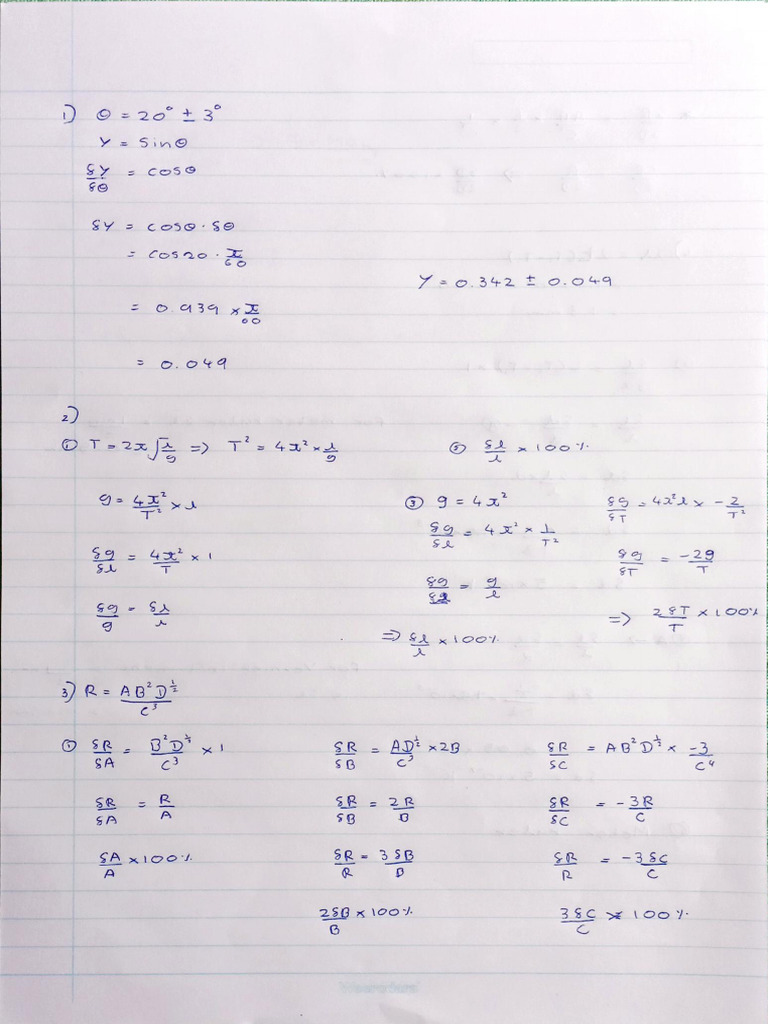 1) θ = 20° ± 3°
Y = Sinθ
δY/δθ = cosθ
δY = cosθ · δθ
= cos20 · π/60
Y = 0.342 ± 0.049
= 0.939 × π/60
= 0.049
2)
① T = 2π√(l/g) => T² = 4π² × l/g
② δl/l × 100%
g = 4π²/T² × l
③ g = 4π²
δg/δT = 4π²l × -2/T²
δg/δl = 4π² × 1/T²
δg/δl = 4π²/T × 1
δg/δT = -2g/T
δg/δl = g/l
δg/g = δl/l
=> 2δT/T × 100%
=> δl/l × 100%
3) R = AB²D^½/C³
① δR/δA = B²D^½/C³ × 1
δR/δB = AD^½/C³ × 2B
δR/δC = AB²D^½ × -3/C⁴
δR/δA = R/A
δR/δB = 2R/B
δR/δC = -3R/C
δA/A × 100%
δR/R = 3δB/B
δR/R = -3δC/C
2δB/B × 100%
3δC/C × 100%